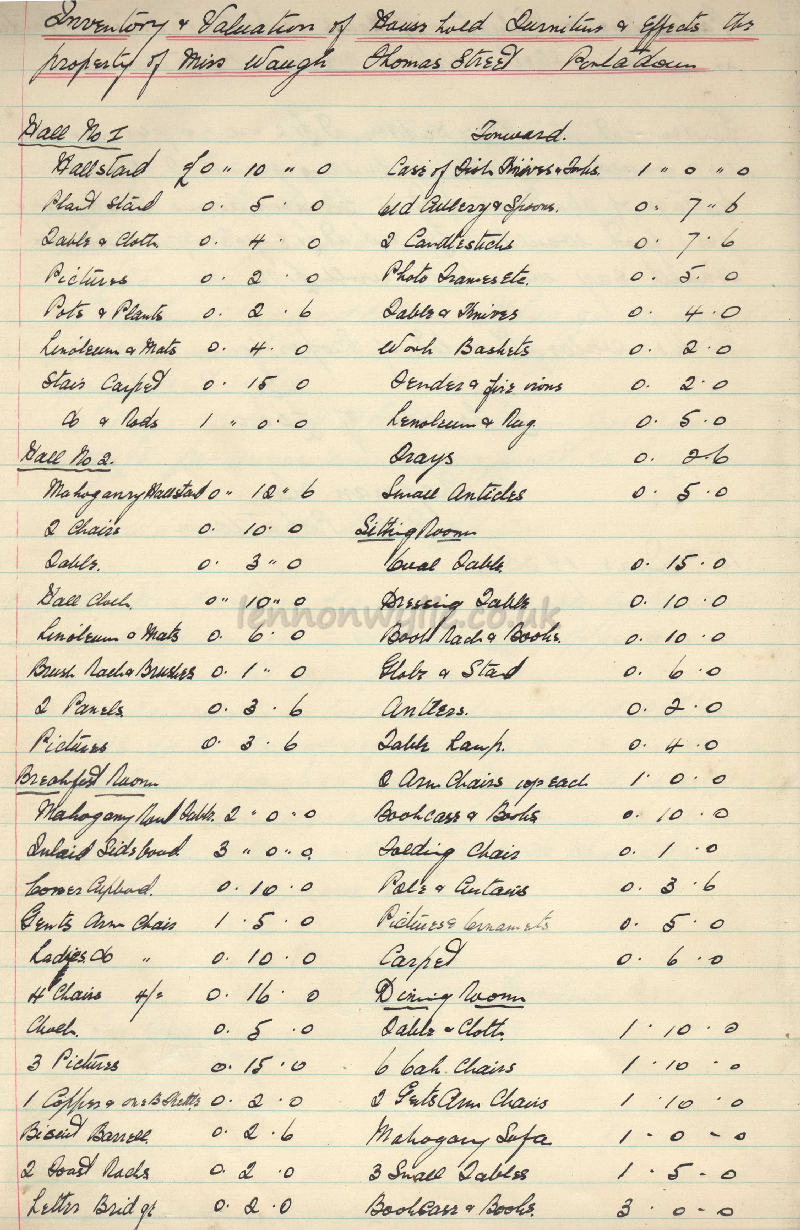 Inventory & Valuation of Household Furniture & Effects the
property of Miss Waugh Thomas Street Portadown
Hall No I
Hallstand £0 " 10 " 0
Plant Stand 0. 5. 0
Table & Cloth 0. 4. 0
Pictures 0. 2. 0
Pots & Plants 0. 2. 6
Linoleum & Mats 0. 4. 0
Stair Carpet 0. 15. 0
Do & Rods 1 " 0. 0
Hall No 2.
Mahogany Hallstand 0 " 12 " 6
2 Chairs 0. 10. 0
Table. 0. 3 " 0
Hall Clock 0 " 10 " 0
Linoleum & Mats 0. 6. 0
Brush Rack & Brushes 0. 1 " 0
2 Panels 0. 3. 6
Pictures 0. 3. 6
Breakfast Room
Mahogany Round Table. 2 " 0. 0
Inlaid Sideboard 3 " 0 " 0
Corner Cupboard. 0. 10. 0
Gents Arm Chair 1. 5. 0
Ladies Do " 0. 10. 0
4 Chairs 4/= 0. 16. 0
Clock. 0. 5. 0
3 Pictures 0. 15. 0
1 Copper & one B Kettle 0. 2. 0
Biscuit Barrell 0. 2. 6
2 Toast Racks 0. 2. 0
Letter Bridge 0. 2. 0
Forward.
Case of Fish Knives & Forks. 1 " 0 " 0
Old Cutlery & Spoons. 0. 7 " 6
2 Candlesticks 0. 7. 6
Photo Frames Etc. 0. 5. 0
Table & Knives 0. 4. 0
Work Baskets 0. 2. 0
Fender & fire irons 0. 2. 0
Lenoleum & Rug. 0. 5. 0
Trays 0. 2-6
Small Articles 0. 5. 0
Sitting Room
Oval Table 0. 15. 0
Dressing Table 0. 10. 0
Book Rack & Books. 0. 10. 0
Globe & Stand 0. 6. 0
Antlers. 0. 2. 0
Table Lamp. 0. 4. 0
2 Arm Chairs 10/= each 1. 0. 0
Bookcase & Books 0. 10. 0
Folding Chair 0. 1. 0
Pole & Curtains 0. 3. 6
Pictures & Ornaments 0. 5. 0
Carpet 0. 6. 0
Dining Room
Table & Cloth 1. 10. 0
6 Oak Chairs 1. 10. 0
2 Gents Arm Chairs 1. 10. 0
Mahogany Sofa 1 - 0 - 0
3 Small Tables 1. 5 - 0
Bookcase & Books. 3. 0 - 0
lennonwylie.co.uk